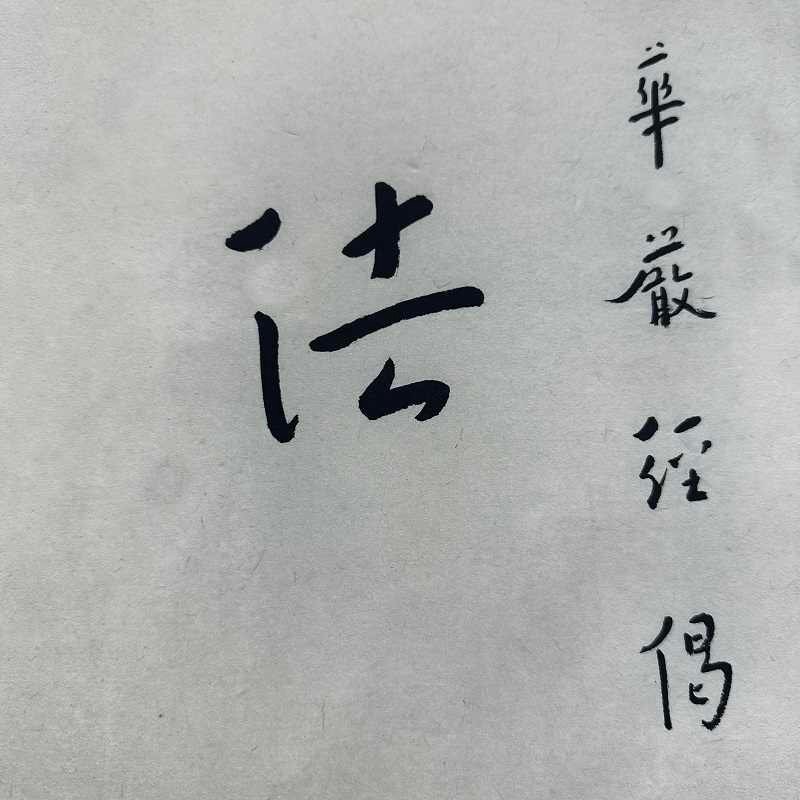 華嚴經偈
法